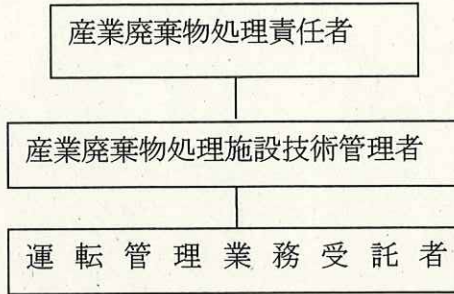 産業廃棄物処理責任者
産業廃棄物処理施設技術管理者
運転管理業務受託者